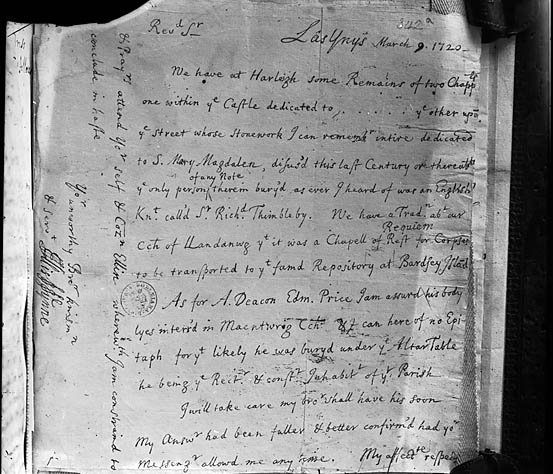 342a
Revd Sr
Lâs Ynys March 9. 1720
We have at Harlegh some Remains of two Chapls
one within ye Castle dedicated to . . . . . . ye other upo
ye Street whose Stonework I can rememr intire dedicated
to S. Mary Magdalen, disus'd this last Century or thereabts
of any Note
ye only person therein bury'd as ever I heard of was an English
Knt call'd Sr Richd Thimbleby. We have a Tradn abt our
Requiem
Cch of Llandanwg yt it was a Chapell of Rest for Corpses
to be transported to yt famd Repository at Bardsey Isld
As for A. Deacon Edm. Price I am assurd his body
lyes interrd in Maentwrog Cch & I can here of no Epi
taph for yt likely he was buryd under ye Altar Table
he being ye Rectr & constt Inhabitt of yt Parish
I will take care my bror shall have his soon
My Answr had been fuller & better confirm'd had yor
Messengr allowd me any time. My affecte respects
& Prayrs attend Yor self & Cozn Ellin wherewth I am constraind to
conclude in haste
Yor
unworthy Bror kinsmn
& servt
Ellis Wynne